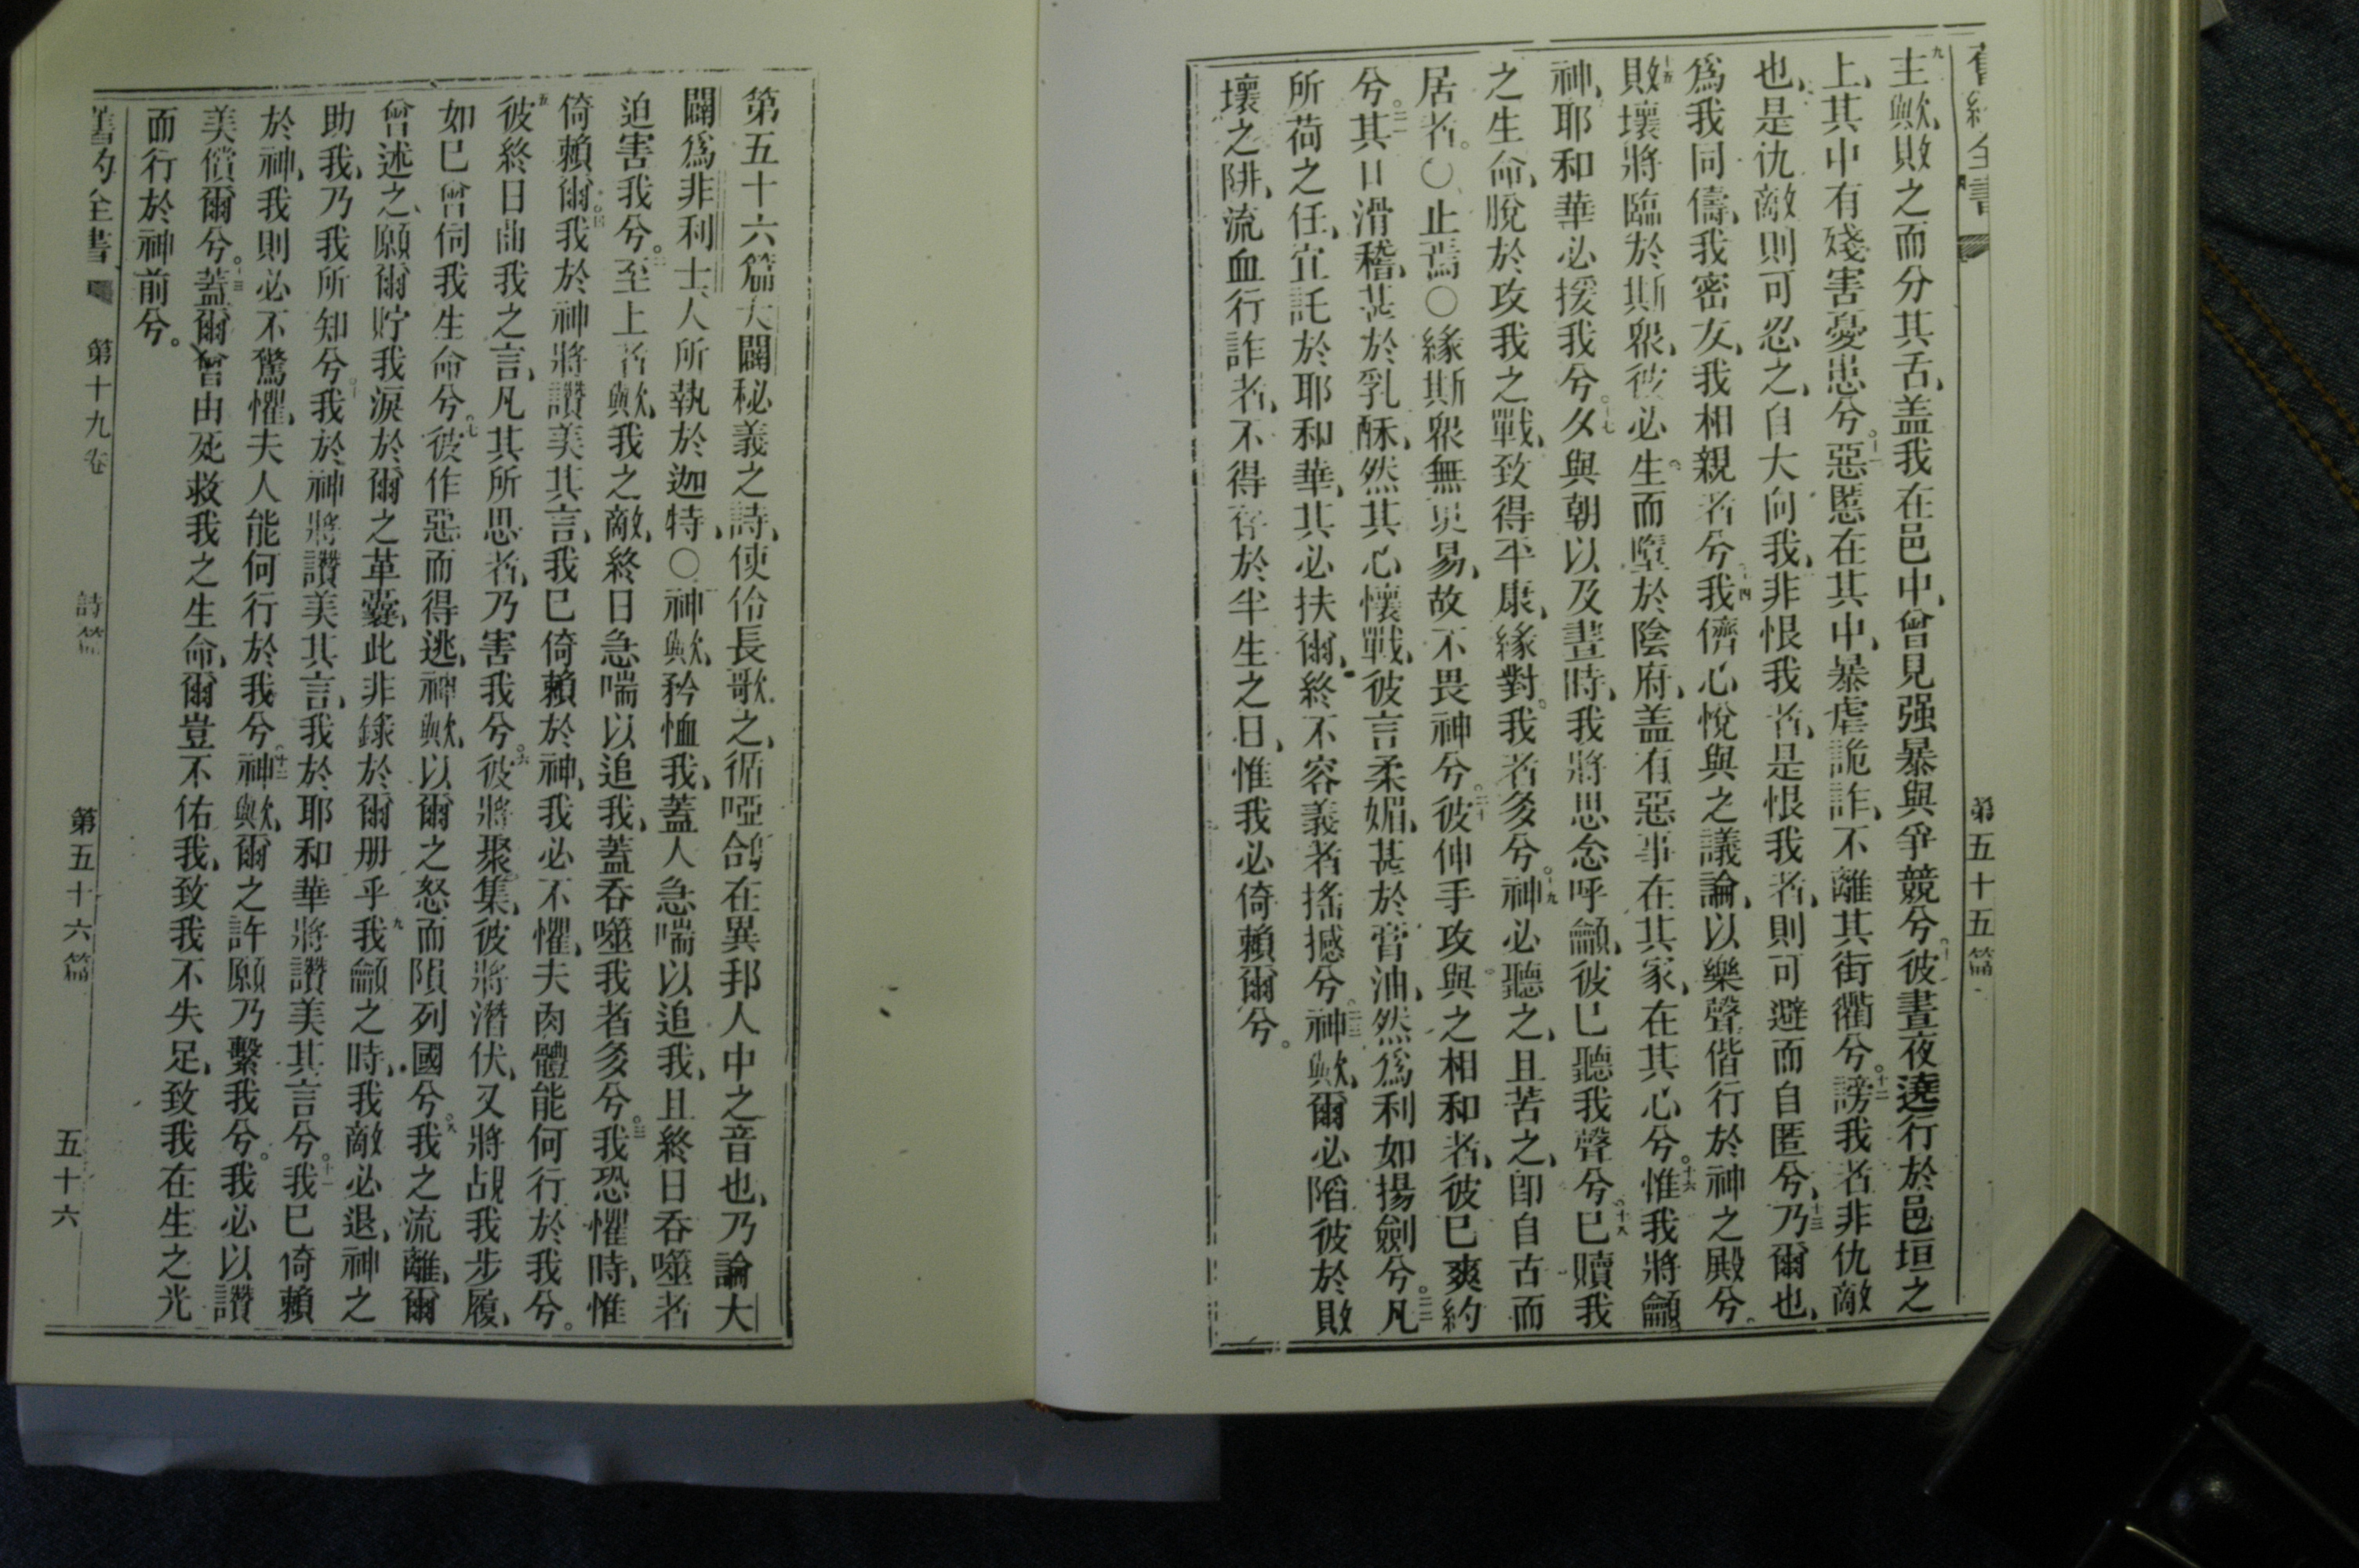 舊約全書
第五十五篇
九主歟、敗之而分其舌、盖我在邑中、曾見强暴與爭競兮。十彼晝夜遶行於邑垣之
上、其中有殘害憂患兮。十一惡慝在其中、暴虐詭詐、不離其街衢兮。十二謗我者非仇敵
也、是仇敵則可忍之、自大向我、非恨我者、是恨我者、則可避而自匿兮、十三乃爾也、
爲我同儔、我密友、我相親者兮。十四我儕心悅與之議論、以樂聲偕行於神之殿兮。
十五敗壞將臨於斯衆、彼必生而墮於陰府、盖有惡事在其家、在其心兮。十六惟我將龥
神、耶和華必援我兮。十七夕與朝以及晝時、我將思念呼龥、彼巳聽我聲兮。十八巳贖我
之生命、脫於攻我之戰、致得平康、緣對我者多兮。十九神必聽之、且苦之、卽自古而
居者。〇止焉〇緣斯衆無更易、故不畏神兮。二十彼伸手攻與之相和者、彼巳爽約
兮。二一其口滑稽、甚於乳酥、然其心懷戰、彼言柔媚、甚於膏油、然爲利如揚劍兮。二二凡
所荷之任、宜託於耶和華、其必扶爾、終不容義者搖撼兮。二三神歟、爾必陷彼於敗
壞之阱、流血行詐者、不得存於半生之日、惟我必倚賴爾兮。
第五十六篇大闢秘義之詩、使伶長歌之、循啞鴿在異邦人中之音也、乃論大
闢爲非利士人所執於迦特、〇一神歟、矜恤我、蓋人急喘以追我、且終日吞噬者
迫害我兮。二至上者歟、我之敵、終日急喘以追我、蓋吞噬我者多兮。三我恐懼時、惟
倚賴爾。四我於神將讚美其言、我巳倚賴於神、我必不懼、夫肉體能何行於我兮。
五彼終日曲我之言、凡其所思者、乃害我兮。六彼將聚集、彼將潛伏、又將覘我步履、
如巳曾伺我生命兮。七彼作惡而得逃、神歟、以爾之怒而隕列國兮。八我之流離、爾
曾述之、願爾貯我淚於爾之革囊、此非錄於爾册乎九我龥之時、我敵必退、神之
助我、乃我所知兮。十我於神將讚美其言、我於耶和華將讚美其言兮。十一我巳倚賴
於神、我則必不驚懼、夫人能何行於我兮。十二神歟、爾之許願乃繫我兮。我必以讚
美償爾兮。十三蓋爾曾由死救我之生命、爾豈不佑我、致我不失足、致我在生之光
而行於神前兮。
舊約全書
第十九卷
詩篇
第五十六篇
五十六